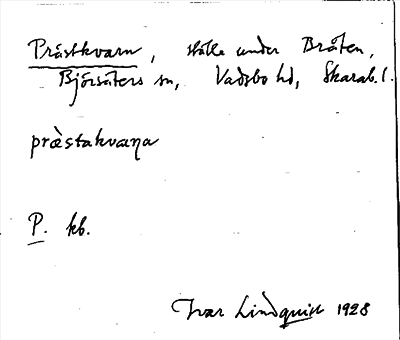 Prästkvarn, ställe under Bråten,
Björsäters sn, Vadsbo hd, Skarab. l.
præ̀stakvæɳa
P. kb.
Ivar Lindquist 1928